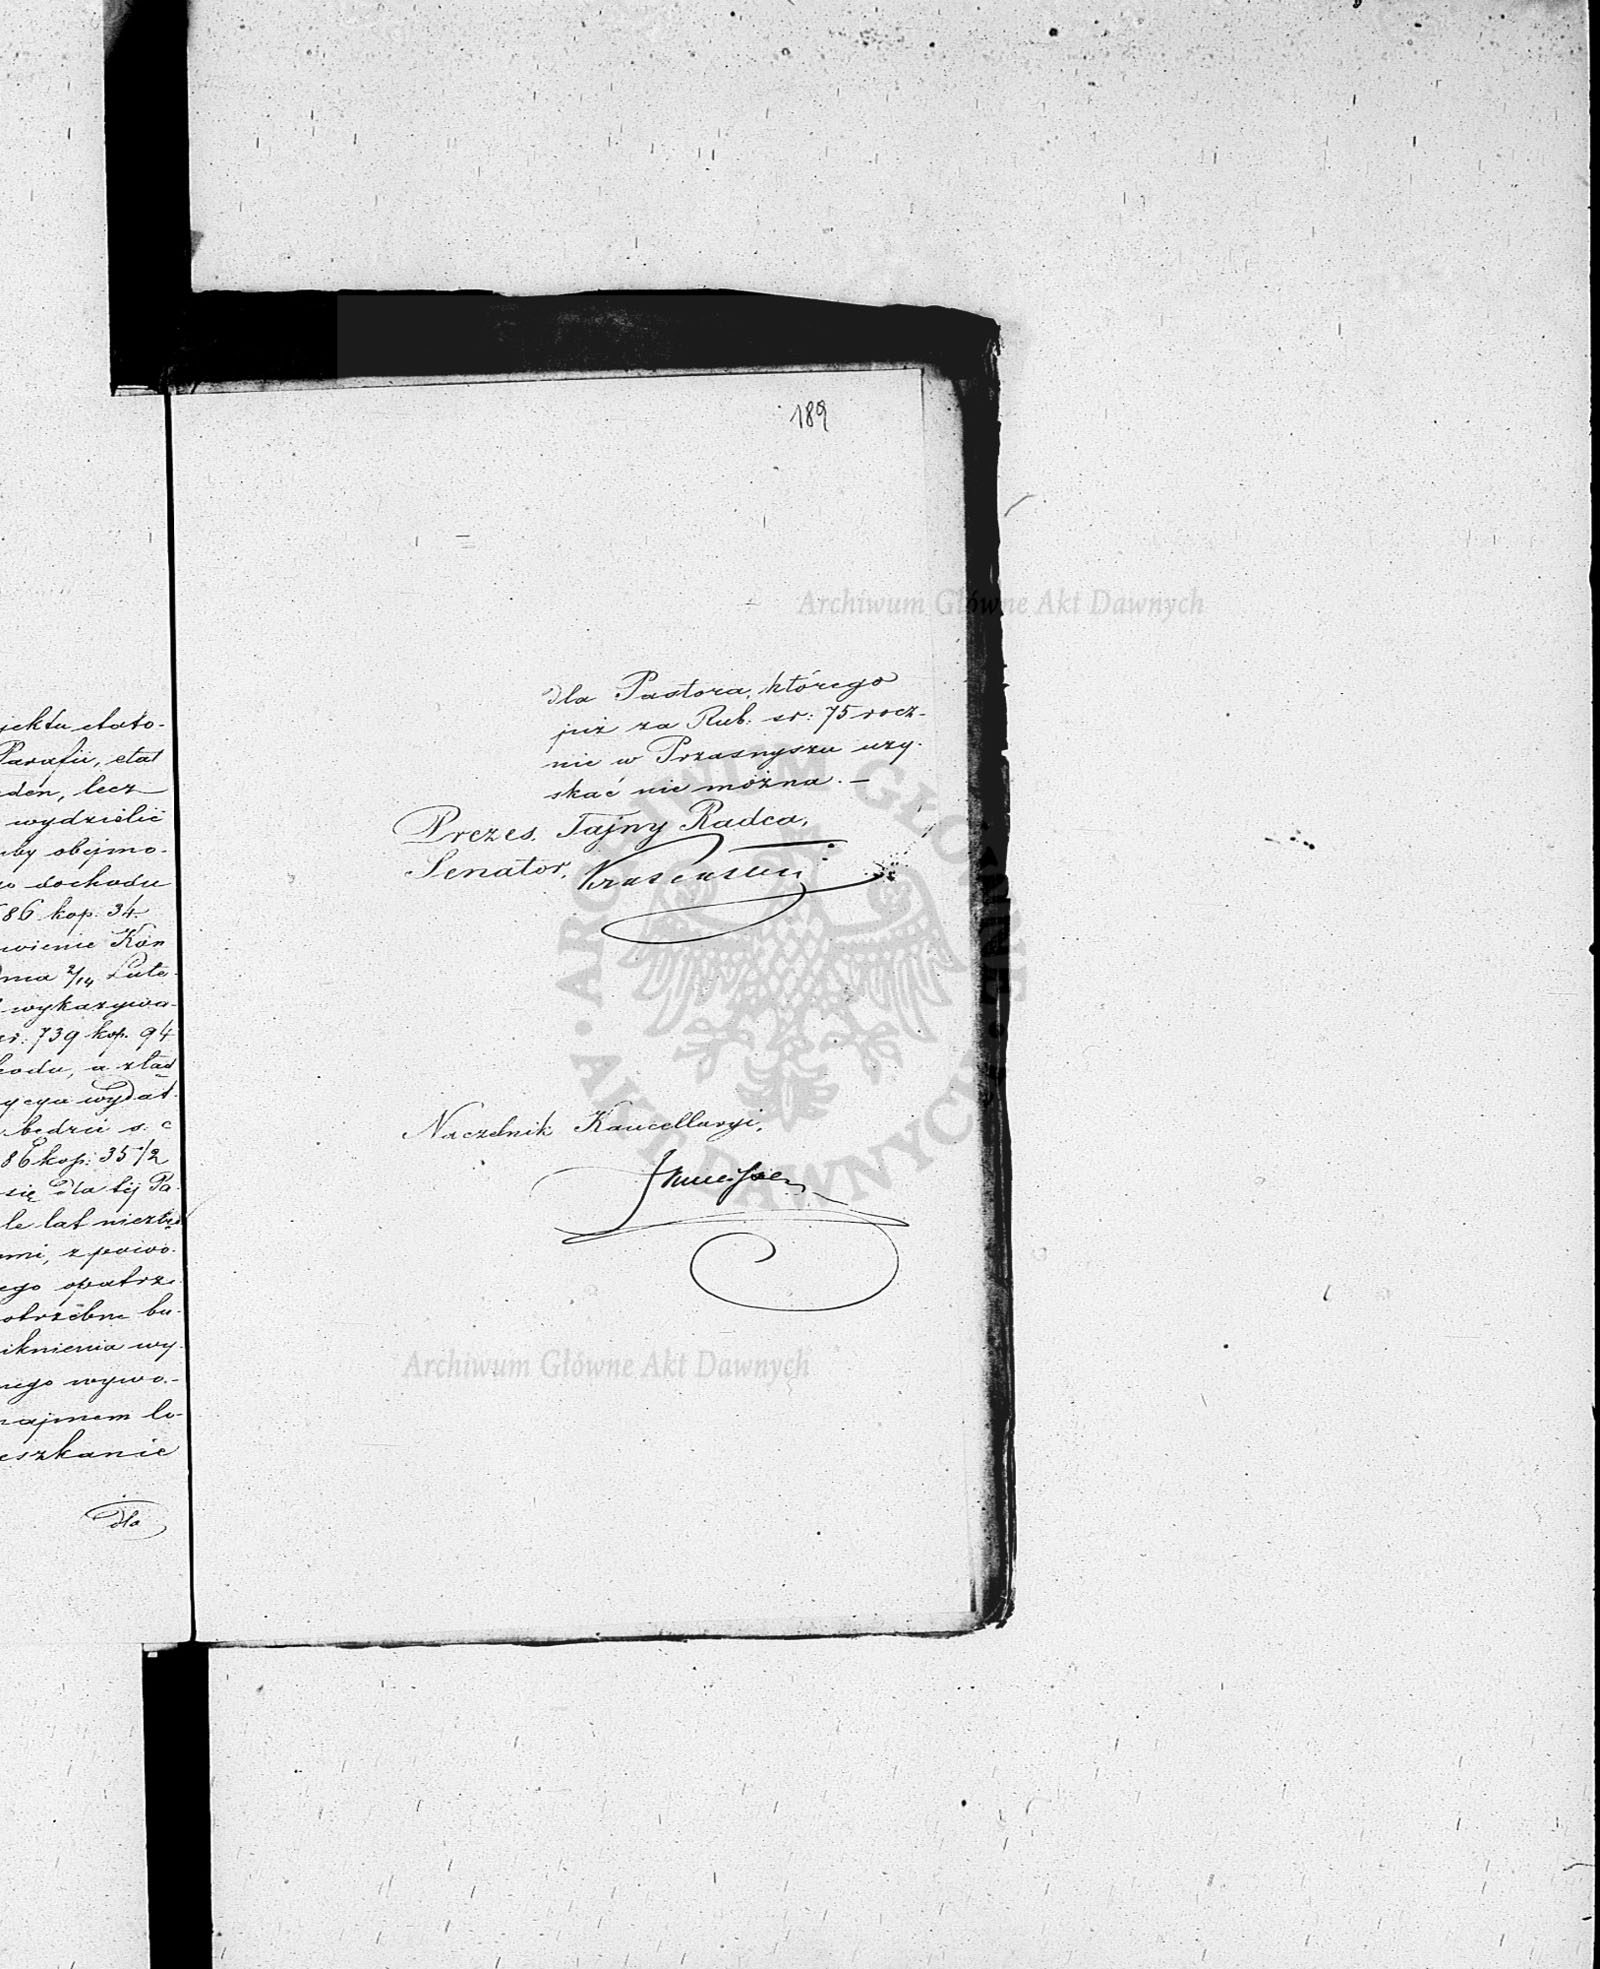 jektu etato-
Parafii, etat
den, lecz
wydzielić
by obejmo-
o dochodu
86 kop: 34.
wienie Kon
dnia 2/14 Lute-
wykazywa-
sr: 739 kop. 94
hodu, a ztąd
ycya wydat-
będzie s: c
86 kop: 35 1/2
się dla tej Pa-
le lat niezbę
ami, z powo-
ego opatrze
otrzebne bu-
iknienia wy-
nego wywo-
najmem lo-
eszkanie
dla
189
dla Pastora, którego
już za Rub: sr: 75 rocz-
nie w Przasnyszu uzy-
skać nie można. —
Prezes, Tajny Radca,
Senator,
Naczelnik Kancellaryi,
Archiwum Główne Akt Dawnych
ARCHIWUM GŁÓWNE AKT DAWNYCH
Archiwum Główne Akt Dawnych